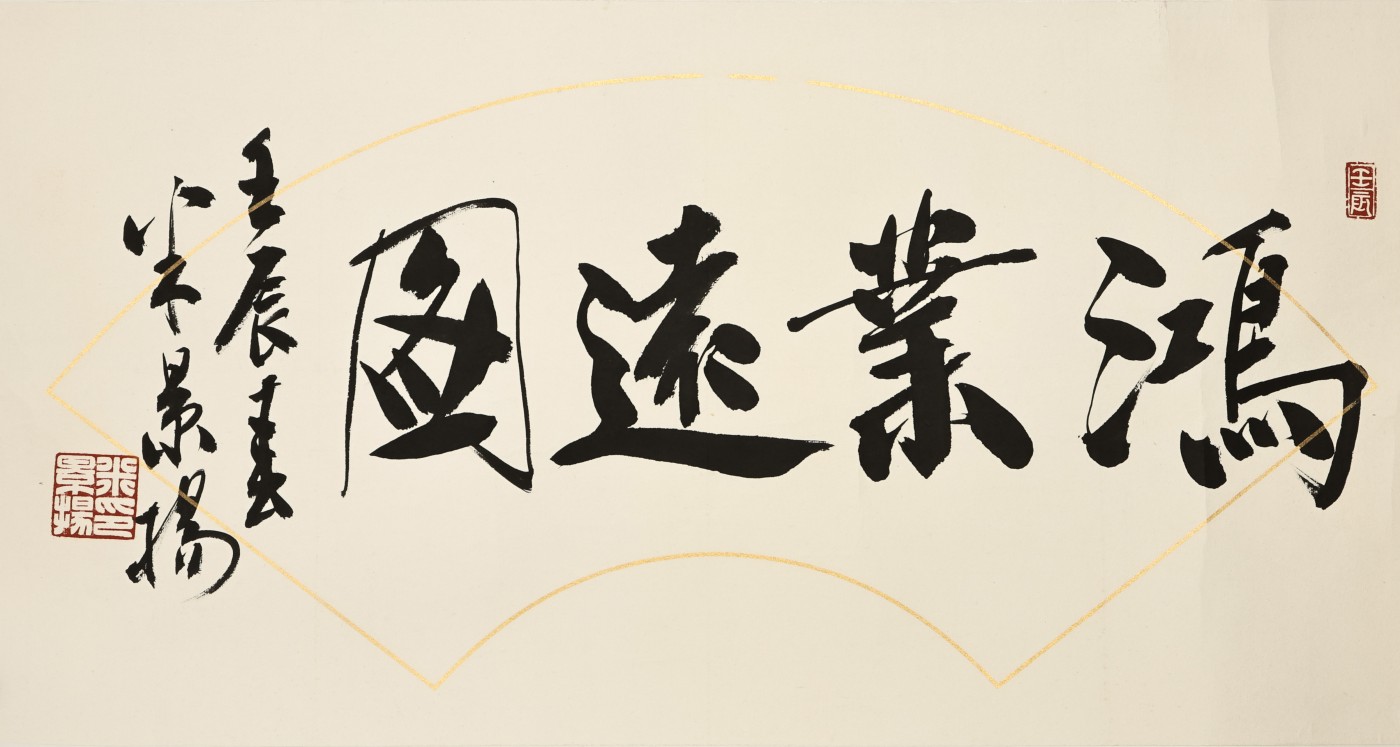 壬辰
鴻業遠圖
壬辰春
米景揚
米印
景揚